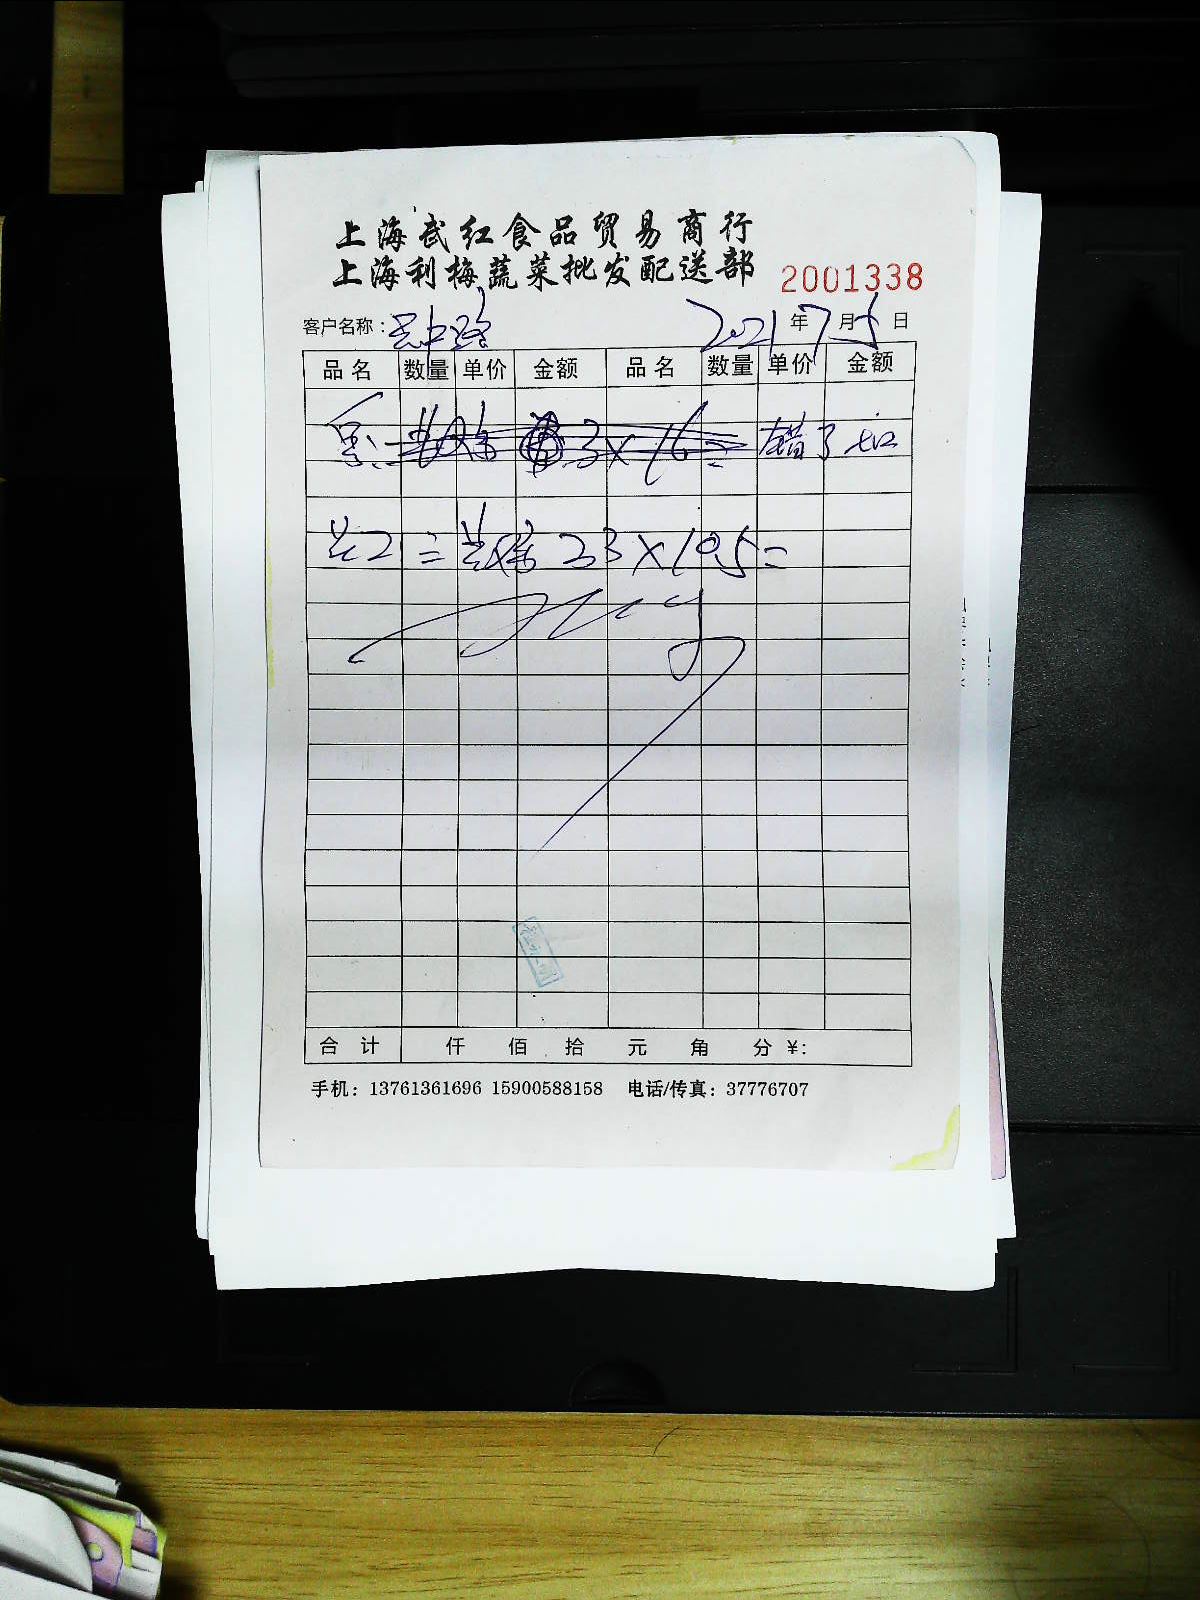 上海武红食品贸易商行
上海利梅蔬菜批发配送部 2001338
客户名称: 吴中路 2021年7月5日
品名 数量 单价 金额 品名 数量 单价 金额
3×16= 错了
23×10.5=
合计 仟 佰 拾 元 角 分 ¥:
手机: 13761361696 15900588158 电话/传真: 37776707